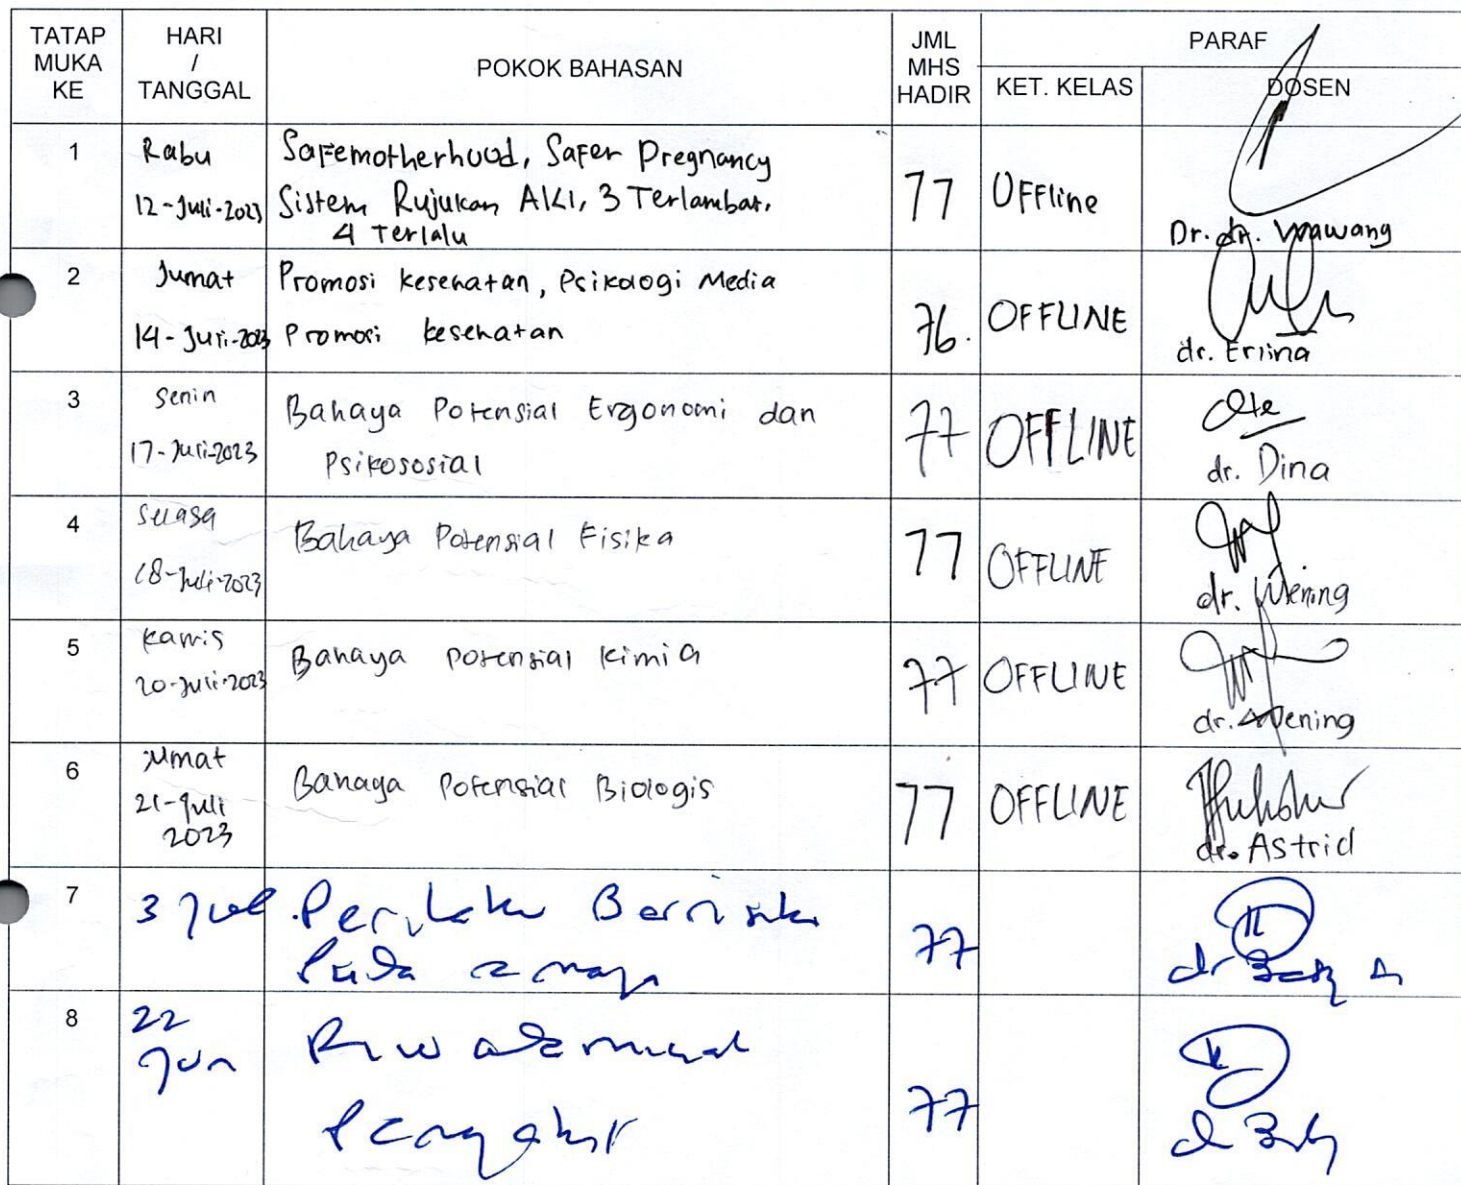 TATAP MUKA KE
HARI / TANGGAL
POKOK BAHASAN
JML MHS HADIR
PARAF
KET. KELAS
DOSEN
1
Rabu
12-Juli-2023
Safemotherhood, Safer Pregnancy
Sistem Rujukan AKI, 3 Terlambat,
4 Terlalu
77
Offline
Dr. dr. Wawang
2
Jumat
14-Juli-2023
Promosi kesehatan, Psikologi Media
Promosi kesehatan
76.
OFFLINE
dr. Erlina
3
Senin
17-Juli-2023
Bahaya Potensial Ergonomi dan
Psikososial
77
OFFLINE
dr. Dina
4
Selasa
18-Juli-2023
Bahaya Potensial Fisika
77
OFFLINE
dr. Wening
5
Kamis
20-Juli-2023
Bahaya Potensial Kimia
77
OFFLINE
dr. Wening
6
Jumat
21-Juli
2023
Bahaya Potensial Biologis
77
OFFLINE
dr. Astrid
7
3 Jul
Perilaku Berisiko
Pada
77
dr
8
22
Jun
77